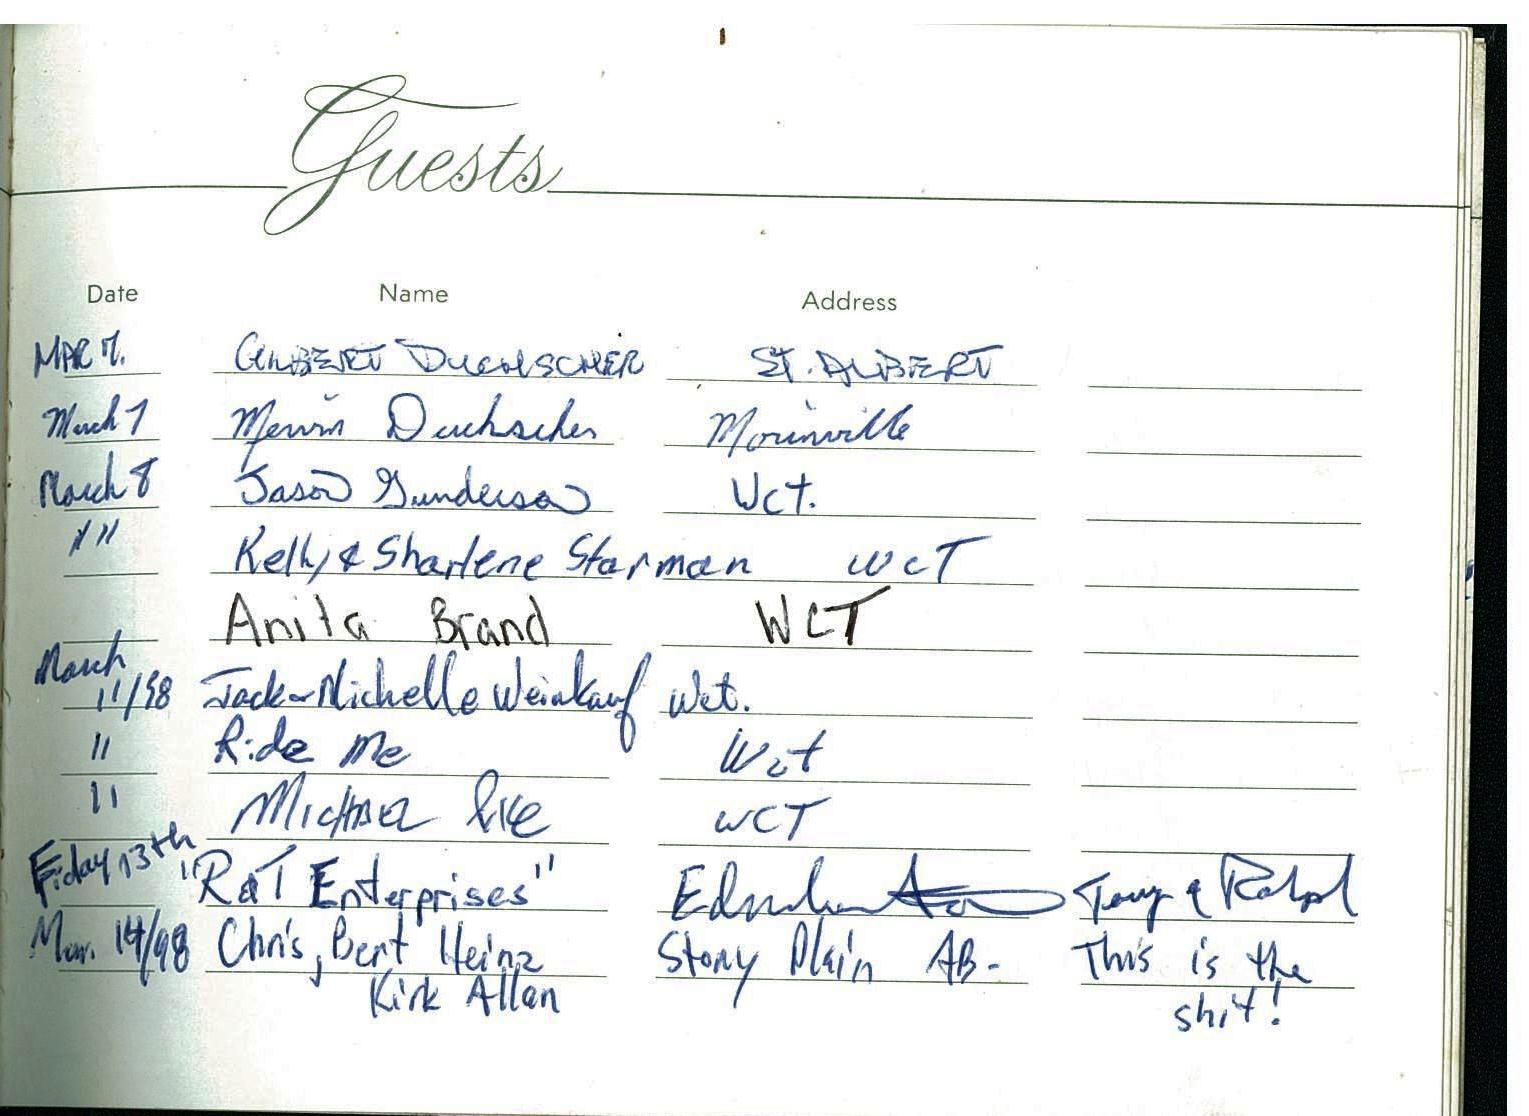 Guests
Date Name Address
MAR 7. GILBERT DUCHSCHER ST. ALBERT
March 7 Mervin Duchscher Morinville
March 8 Jason Gunderson Wct.
" " Kelly & Sharlene Starman WCT
Anita Brand WCT
March
11/98 Jack & Michelle Weinkauf Wct.
" Ride Me Wct
" MICHAEL WCT
Friday 13th "R&T Enterprises" Edmonton Tony & Ralph
Mar. 14/98 Chris, Bert Heinz Stony Plain AB- This is the
Kirk Allan shit!